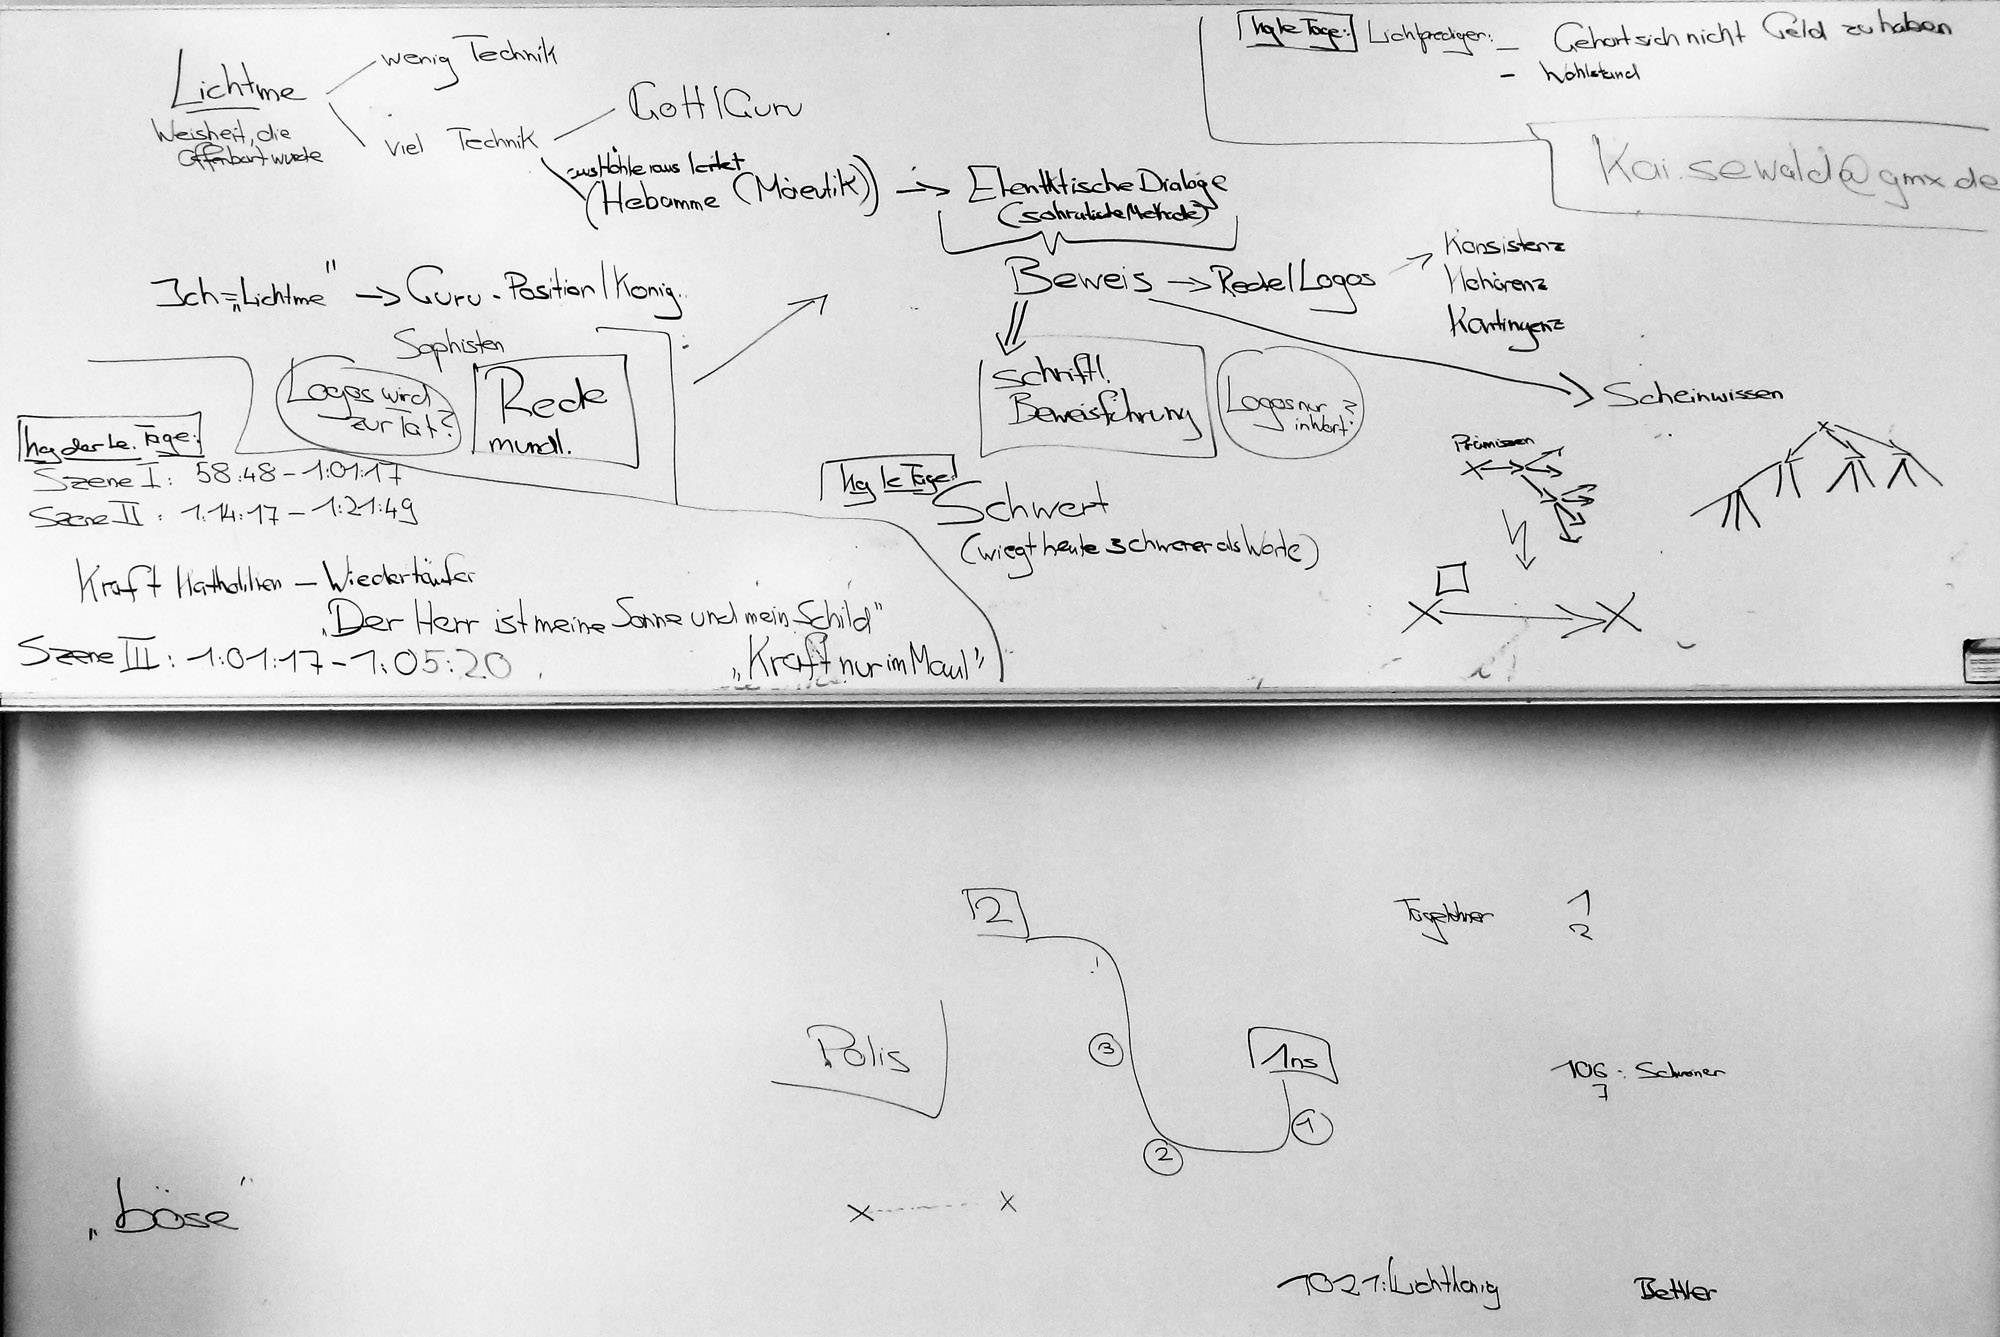 Lichtme
Weisheit, die
Offenbart wurde
wenig Technik
viel Technik
Gott/Guru
aus Höhle raus leitet
(Hebamme (Mäeutik))
Elenktische Dialoge
(sokratische Methode)
hg le Tage:
Lichtprediger:
- Gehört sich nicht Geld zu haben
- Wohlstand
Kai.sewald@gmx.de
Ich = „Lichtme" → Guru-Position/König
Beweis → Rede/Logos
Konsistenz
Kohärenz
Kontingenz
Sophisten
Logos wird
zur Tat?
Rede
mündl.
schriftl.
Beweisführung
Logos nur
in Wort?
Scheinwissen
Prämissen
hg der le. Tage:
Szene I: 58:48 - 1:01:17
Szene II: 1:14:17 - 1:21:49
hg le Tage
Schwert
(wiegt heute schwerer als Worte)
Kraft Katholiken - Wiedertäufer
„Der Herr ist meine Sonne und mein Schild"
Szene III: 1:01:17 - 1:05:20
„Kraft nur im Maul"
2
Tagelöhner
1
2
Polis
3
1ns
1
2
106:
7
„böse"
1021: Lichtkönig
Bettler